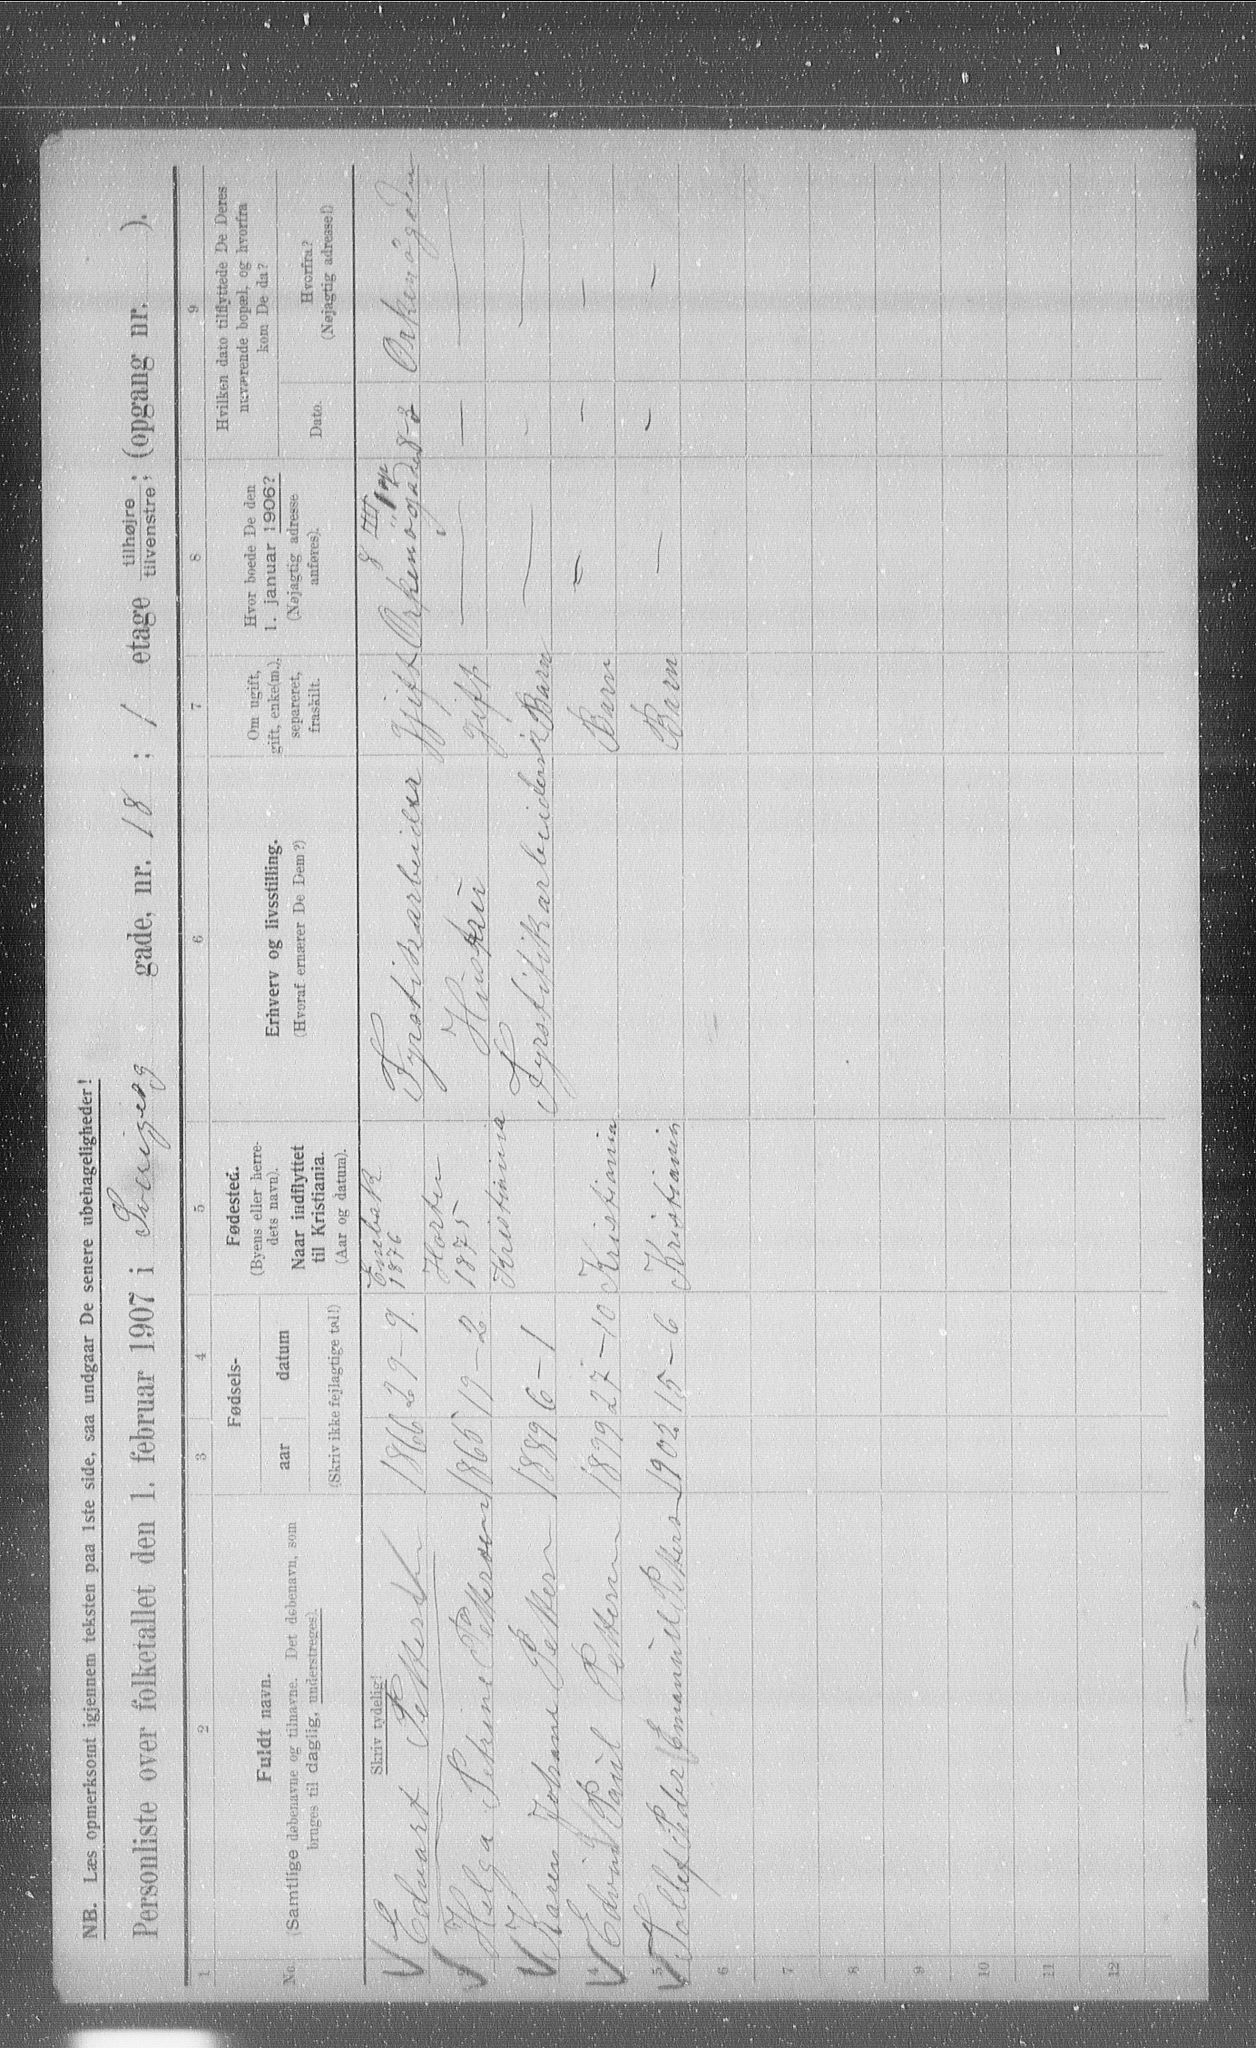 NB. Læs opmerksomt igjennem teksten paa 1ste side, saa undgaar De senere ubehageligheder!
Personliste over folketallet den 1. februar 1907 i Sverigesg gade, nr. 18 ; 1 etage tilhøjre / tilvenstre ; (opgang nr. ).
1 2 3 4 5 6 7 8 9
No.
Fuldt navn.
(Samtlige døbenavne og tilnavne. Det døbenavn, som
bruges til daglig, understreges).
Fødsels-
aar datum
(Skriv ikke fejlagtige tal!)
Fødested.
(Byens eller herre-
dets navn).
Naar indflyttet
til Kristiania.
(Aar og datum).
Erhverv og livsstilling.
(Hvoraf ernærer De Dem?)
Om ugift,
gift, enke(m.),
separeret,
fraskilt.
Hvor boede De den
1. januar 1906?
(Nøjagtig adresse
anføres).
Hvilken dato tilflyttede De Deres
nuværende bopæl, og hvorfra
kom De da?
Dato.
Hvorfra?
(Nøjagtig adresse!)
Skriv tydelig!
Edvart Pettersen 1866 29-9. Enebak 1876 Fyrstikarbeider Gift Orkenøgaden 8 III Orkenøgaden
2 Helga Petrine Pettersen 1865 19-2 Horten 1875 Husfru gift — — —
Karen Johane Pettersen 1889 6-1 Kristiania Fyrstikarbeiderske Barn — - —
4 Edvin Paul Pettersen 1899 27-10 Kristiania Barn — - —
5 Tollef Peder Emanuel Petters 1902 15-6 Kristiania Barn — - —
6
7
8
9
10
11
12